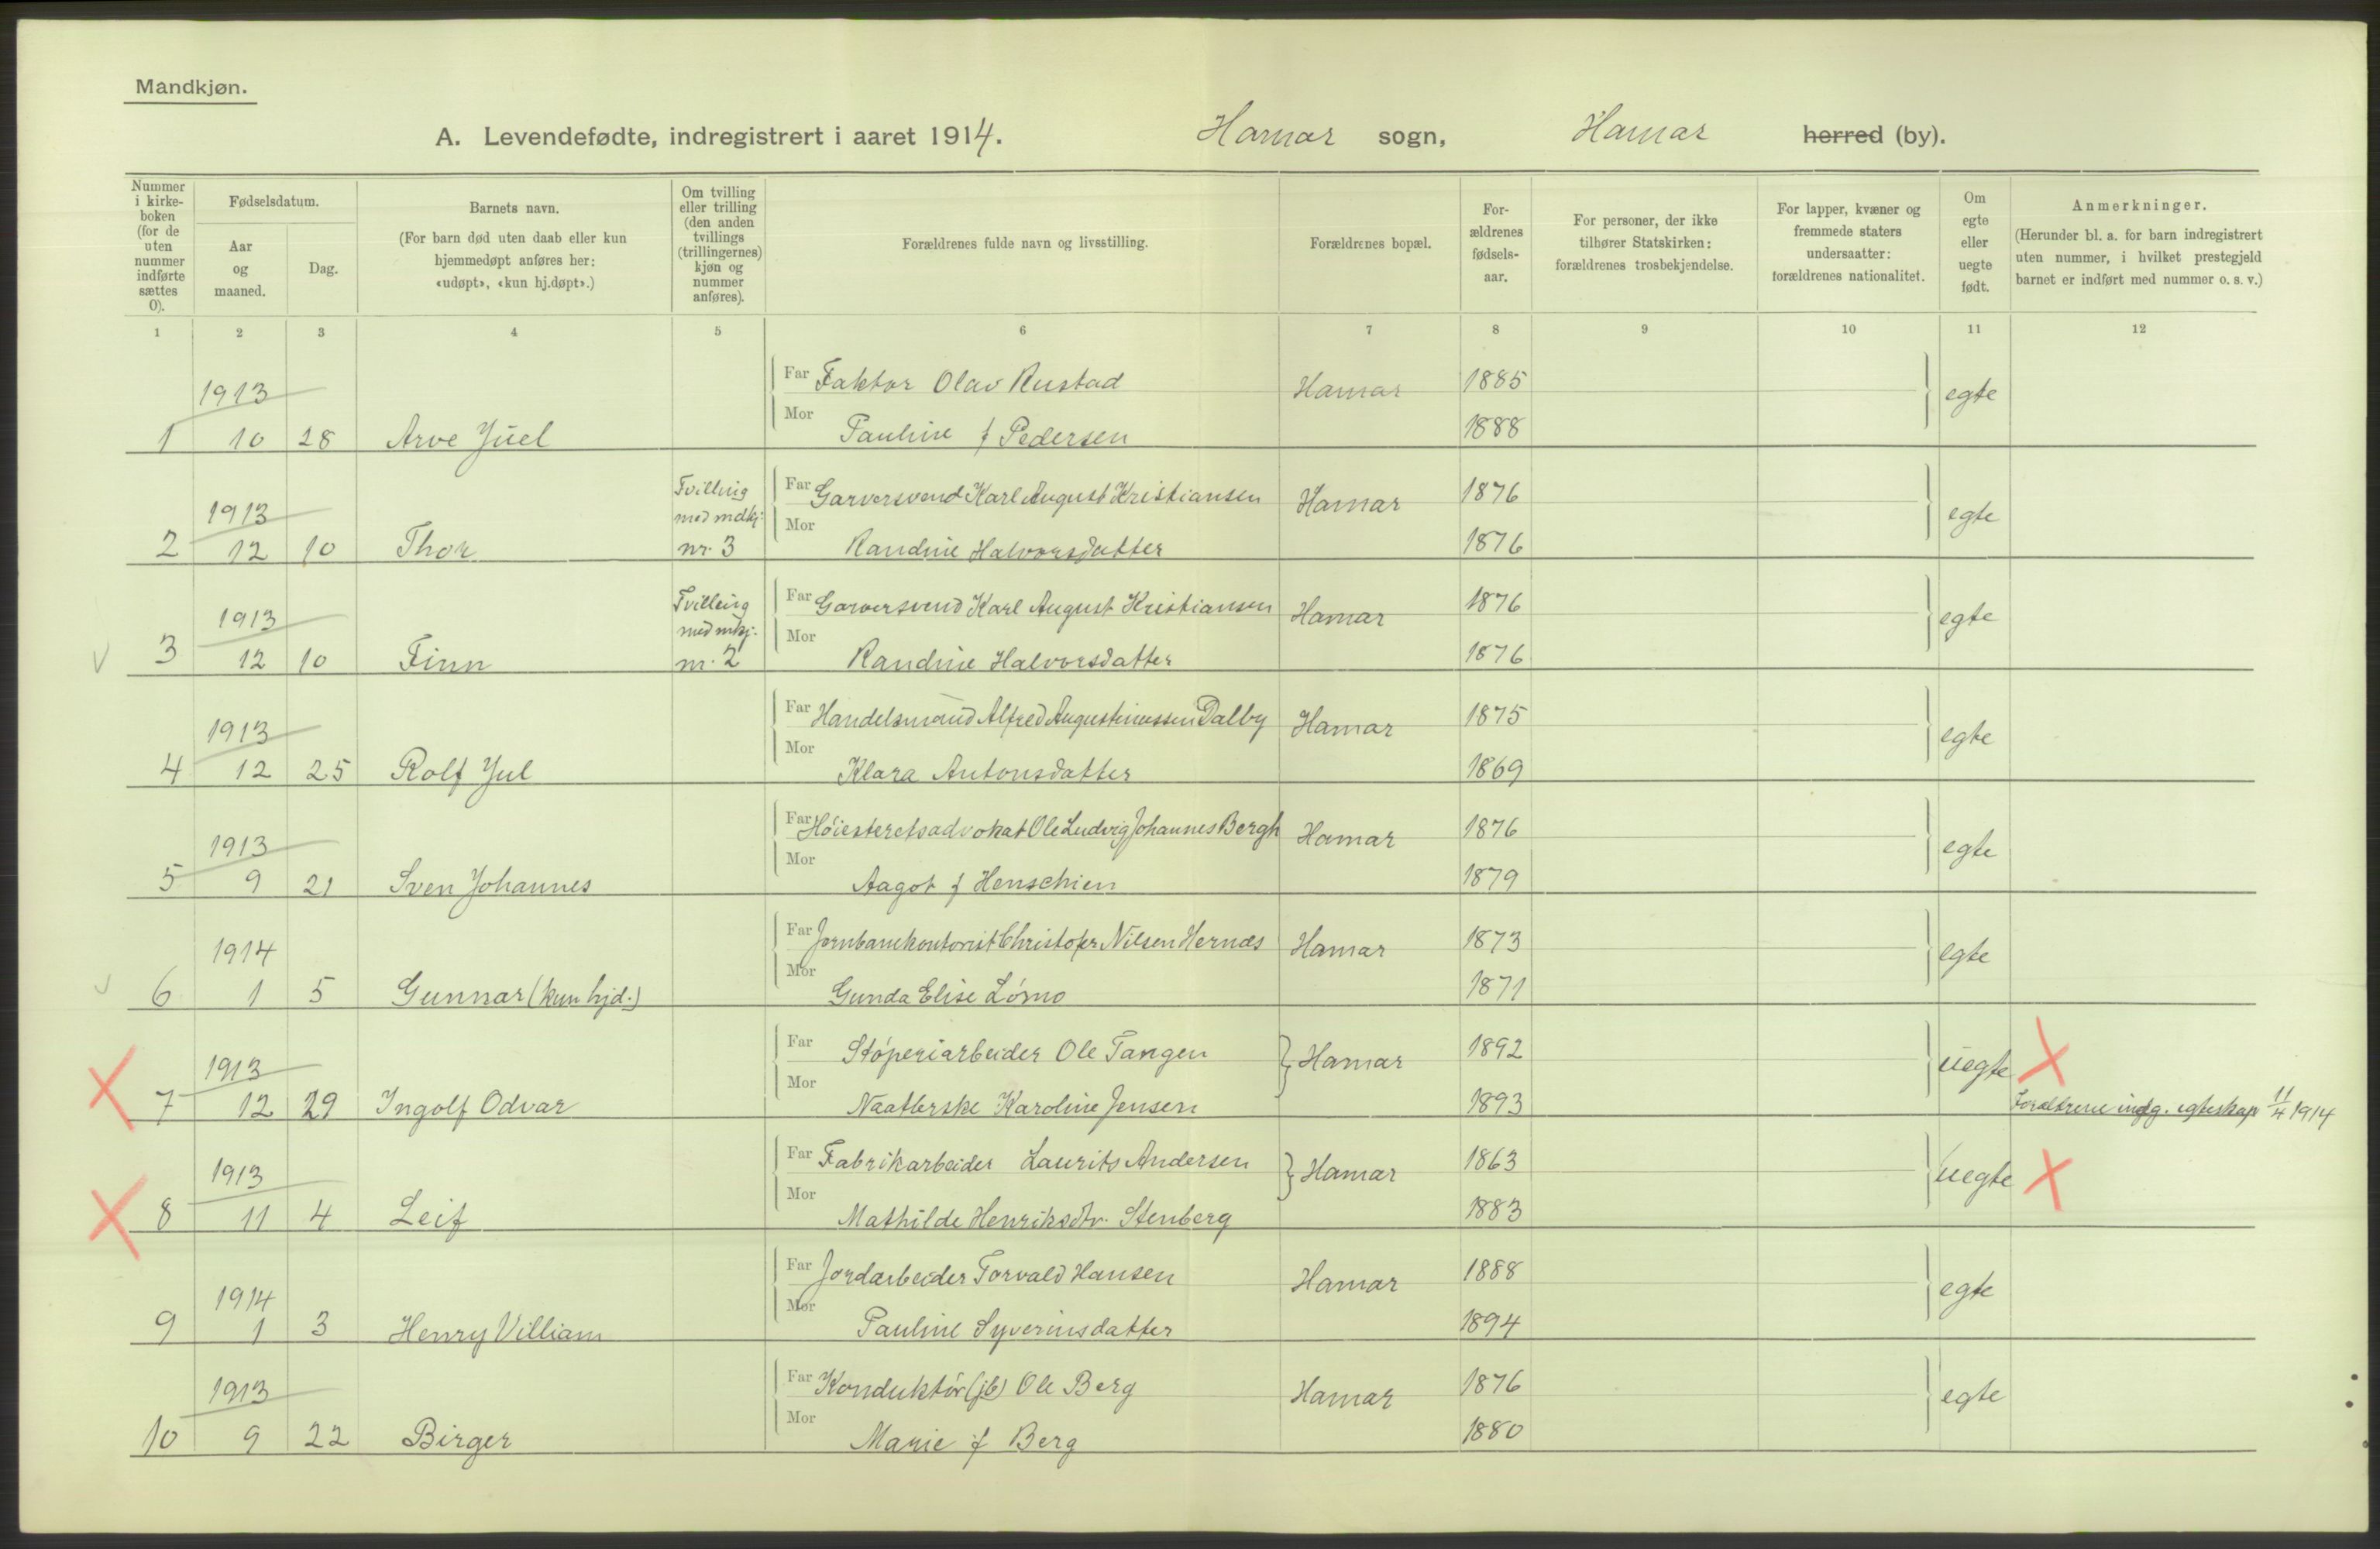 Mandkjøn.
A. Levendefødte, indregistrert i aaret 1914. Hamar sogn, Hamar herred (by).
Nummer i kirke-boken (for de uten nummer indførte sættes 0).
Fødselsdatum.
Aar og maaned.
Dag.
Barnets navn.
(For barn død uten daab eller kun hjemmedøpt anføres her: «udøpt», «kun hj.døpt».)
Om tvilling eller trilling (den anden tvillings (trillingernes) kjøn og nummer anføres).
Forældrenes fulde navn og livsstilling.
Forældrenes bopæl.
For-ældrenes fødsels-aar.
For personer, der ikke tilhører Statskirken: forældrenes trosbekjendelse.
For lapper, kvæner og fremmede staters undersaatter: forældrenes nationalitet.
Om egte eller uegte født.
Anmerkninger.
(Herunder bl. a. for barn indregistrert uten nummer, i hvilket prestegjeld barnet er indført med nummer o. s. v.)
1 2 3 4 5 6 7 8 9 10 11 12
1913 Far Faktor Olav Rustad Hamar 1885 egte
1 10 28 Arve Juel Mor Pauline f Pedersen 1888
1913 Tvilling med mdkj: Far Garversvend Karl August Kristiansen Hamar 1876 egte
2 12 10 Thor nr. 3 Mor Randine Halvorsdatter 1876
1913 Tvilling med mkj. Far Garversvend Karl August Kristiansen Hamar 1876 egte
V 3 12 10 Finn nr. 2 Mor Randine Halvorsdatter 1876
1913 Far Handelsmand Alfred Augustinussen Dalby Hamar 1875 egte
4 12 25 Rolf Jul Mor Klara Antonsdatter 1869
1913 Far Høiesteretsadvokat Ole Ludvig Johannes Bergh Hamar 1876 egte
5 9 21 Sven Johannes Mor Aagot f Henschien 1879
1914 Far Jernbanekontorist Christofer Nilsen Hernæs Hamar 1873 egte
V 6 1 5 Gunnar (kun hjd.) Mor Gunda Elise Lømo 1871
1913 Far Støperiarbeider Ole Tangen Hamar 1892 uegte X
X 7 12 29 Ingolf Odvar Mor Naatlerske Karoline Jensen 1893 Forældrene indg. egteskap 11/4 1914
1913 Far Fabrikarbeider Laurits Andersen Hamar 1863 uegte X
X 8 11 4 Leif Mor Mathilde Henriksdtr. Stenberg 1883
1914 Far Jordarbeider Torvald Hansen Hamar 1888 egte
9 1 3 Henry Villiam Mor Pauline Syverinsdatter 1894
1913 Far Konduktør (jb) Ole Berg Hamar 1876 egte
10 9 22 Birger Mor Marie f Berg 1880